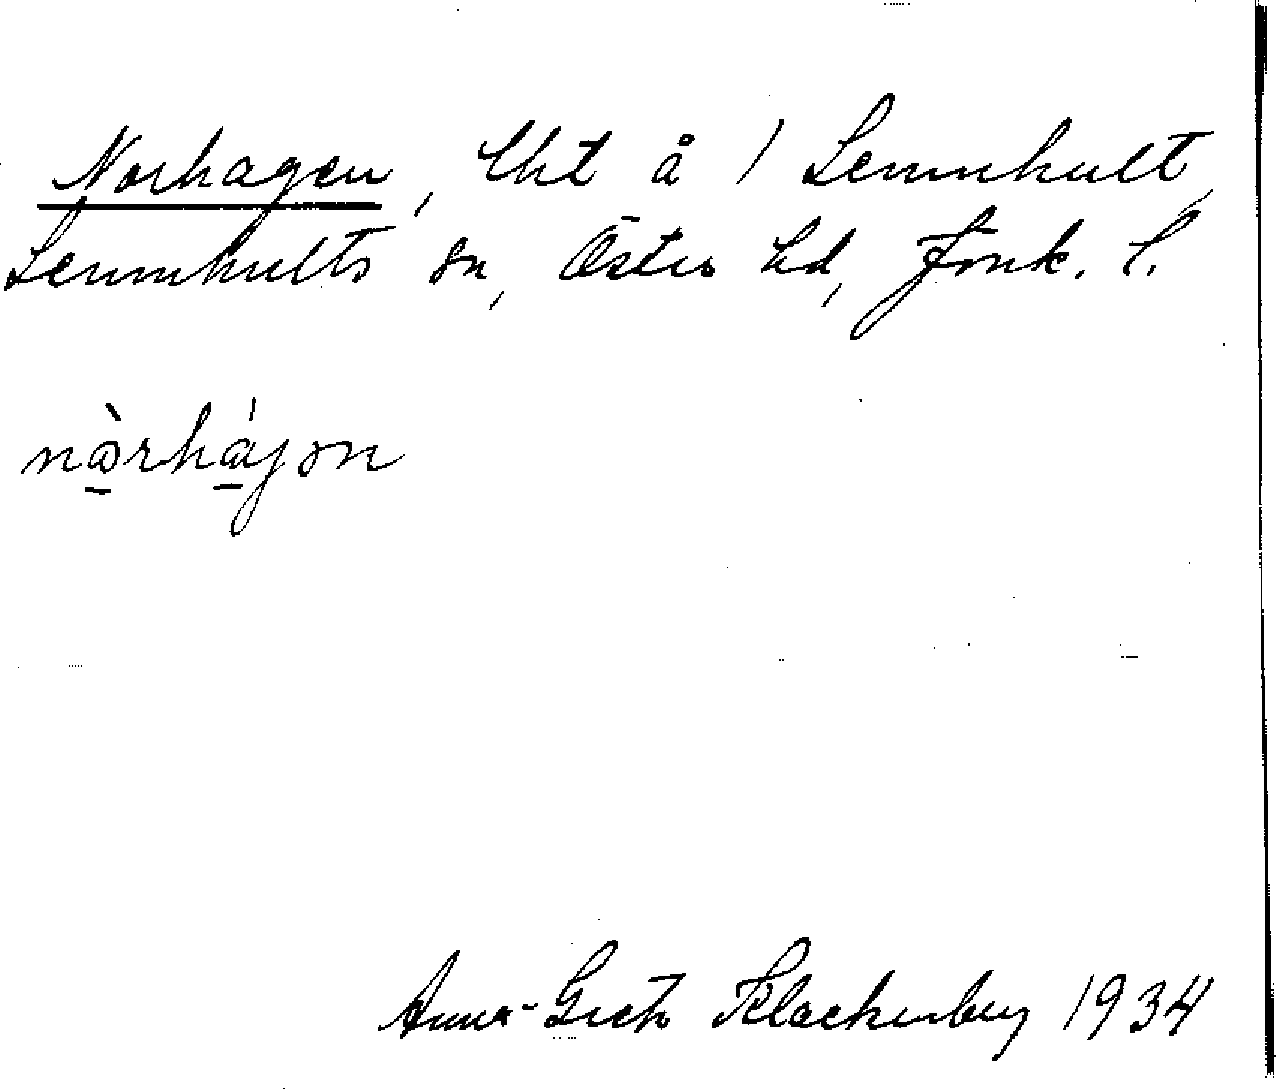 Norhagen, lht å 1 Lemnhult,
Lemnhults sn, Östra hd, Jönk. l.
nòrhájən
Anna-Greta Klackenberg 1934